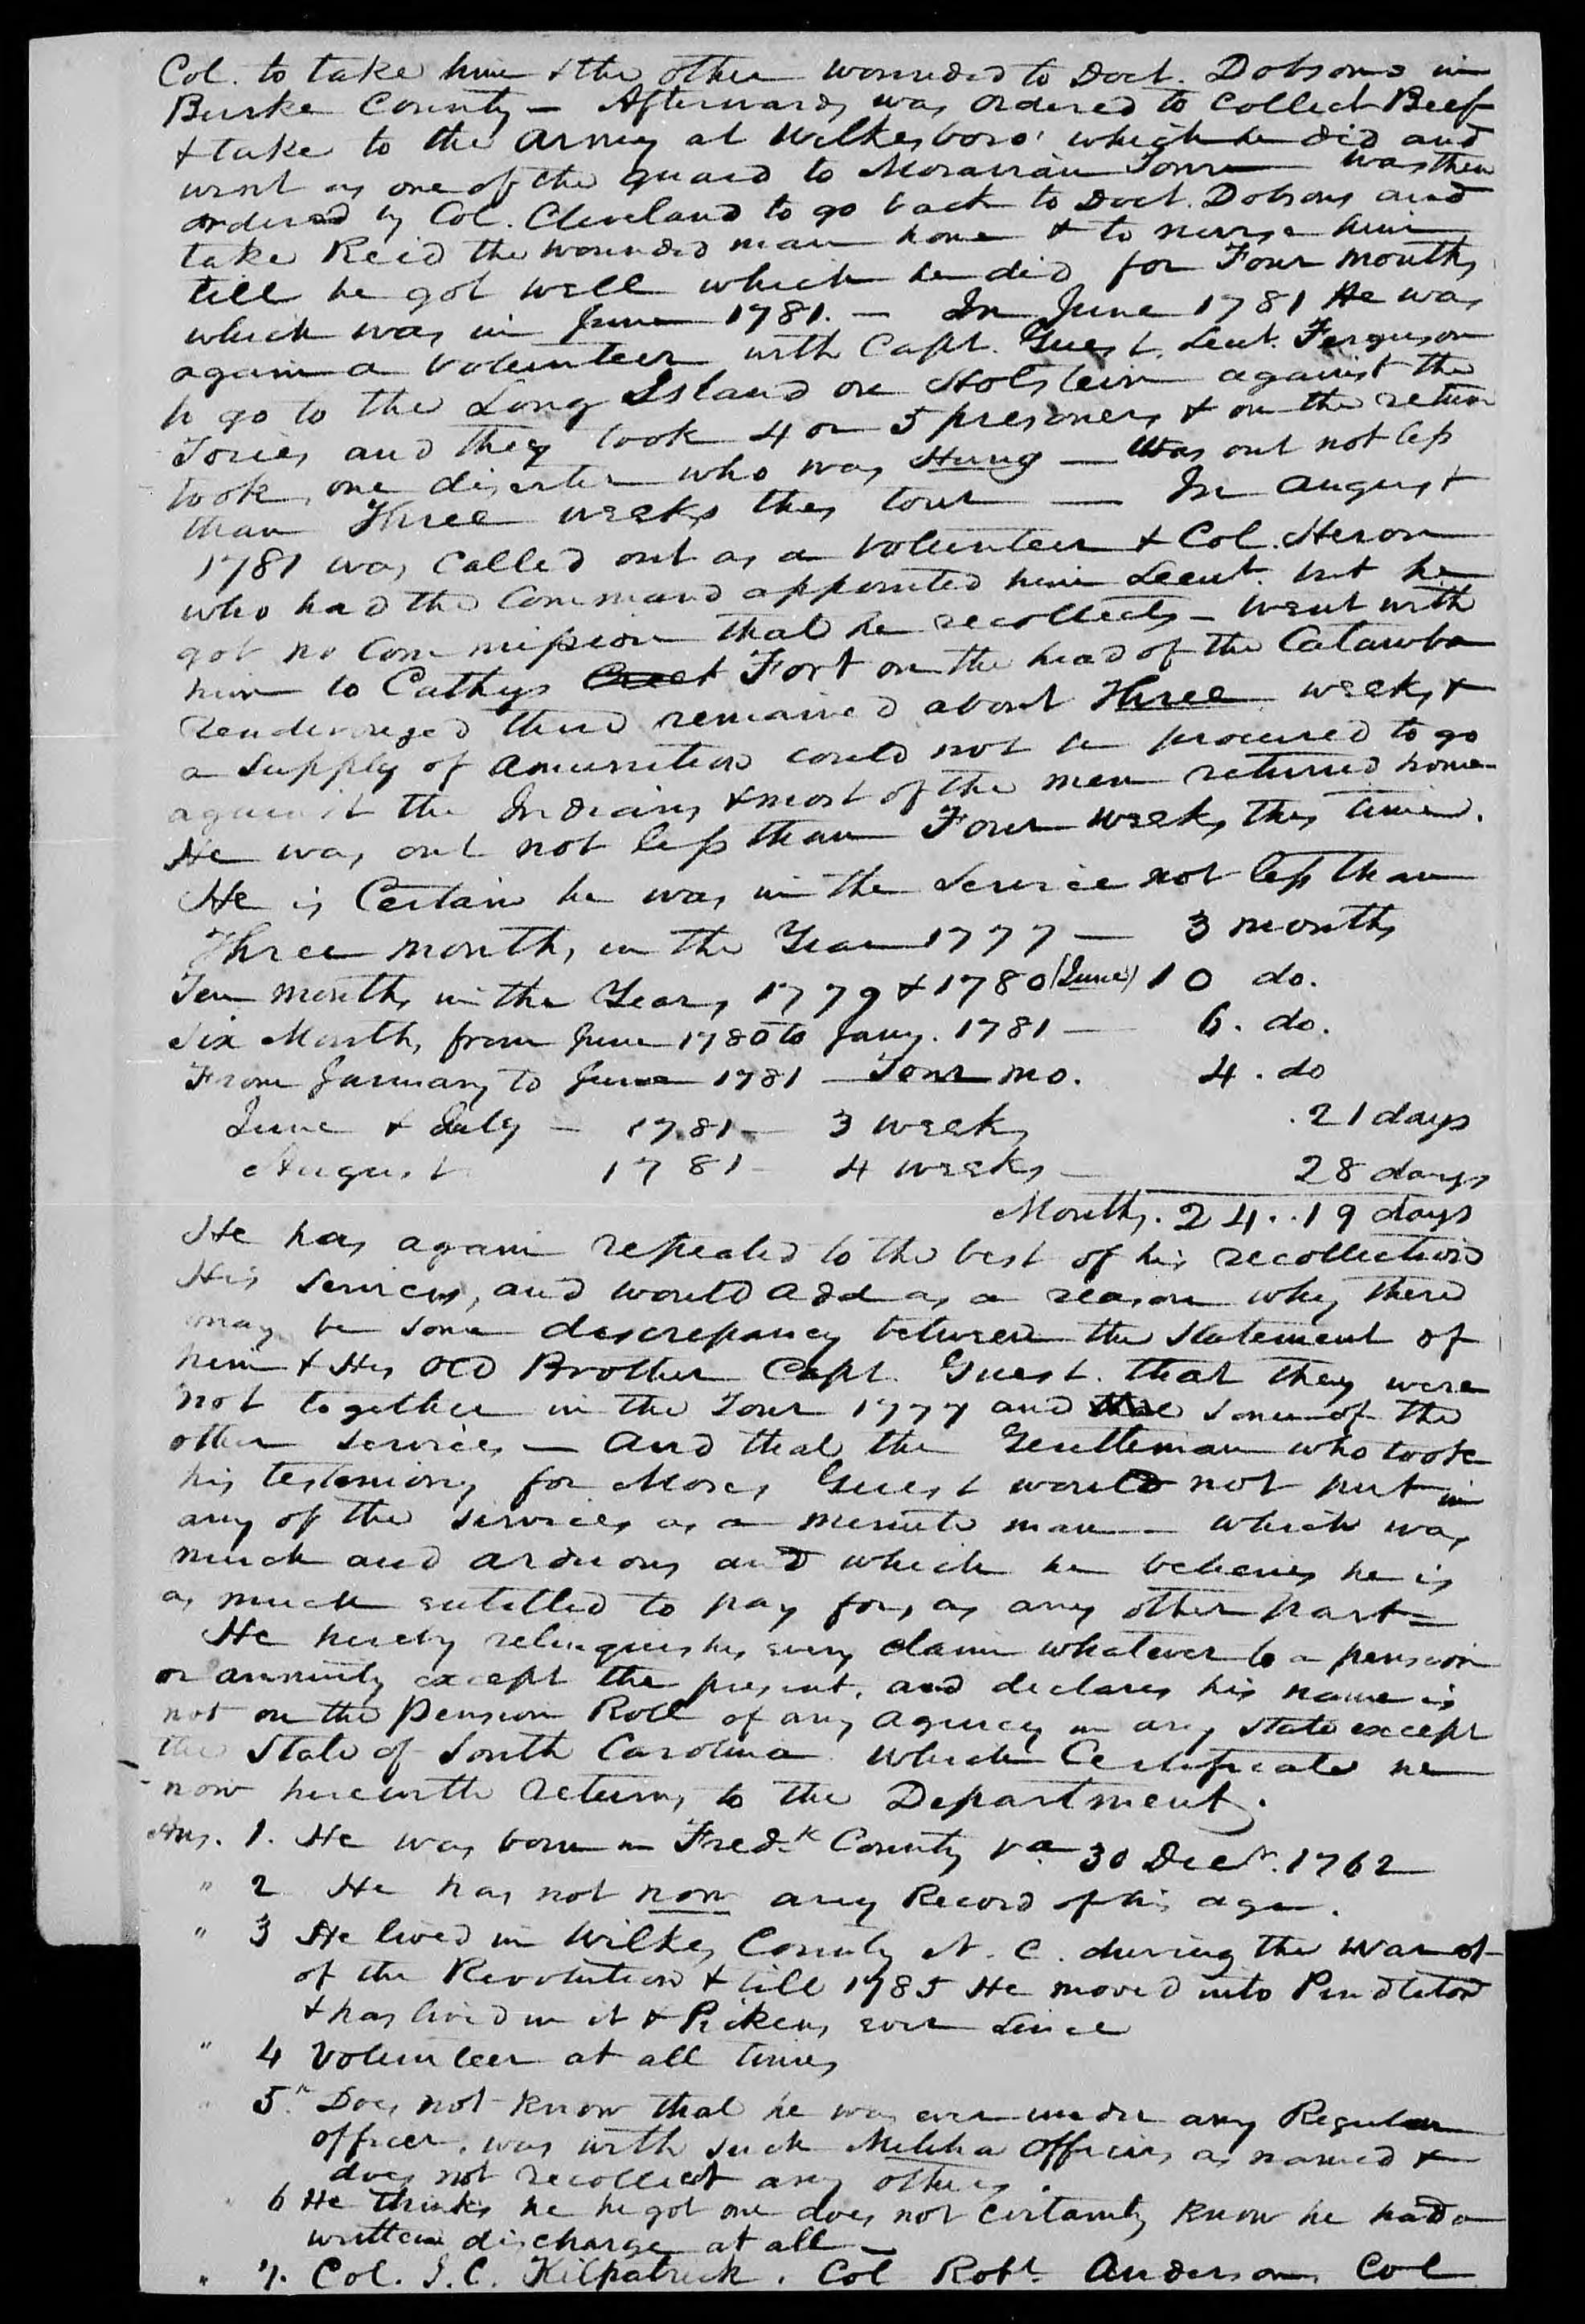 Col. to take him & the other wounded to Doct. Dobsons in
Burke County – Afterwards was ordered to Collect Beef
& take to the army at Wilkesboro' which he did and
went as one of the guard to Moravian Town was then
ordered by Col. Cleveland to go back to Doct. Dobsons and
take Reid the wounded man home & to nurse him
till he got well which he did for Four months
which was in June 1781. – In June 1781 He was
again a volunteer with Capt. Guest, Leut. Ferguson
to go to the Long Island on Holstein against the
Tories and they took 4 or 5 presoners & on the return
took one diserter who was Hung — Was out not less
than Three weeks this tour — In August
1781 was Called out as a volunteer & Col. Heron
who had the Command appointed him Leeut. but he
got no Commission that he recollects – went with
him to Cathys Fort on the head of the Catawba
rendevouzed there remained about Three weeks &
a supply of amunition could not be procured to go
against the Indians & most of the men returned home
He was out not less than Four weeks this time.
He is Certain he was in the Service not less than
Three months in the Year 1777 — 3 months
Ten months in the Years 1779 & 1780 (June) 10 do.
Six Months from June 1780 to Jany. 1781 — 6. do.
From January to June 1781 – Four mo. 4. do
June & July – 1781 – 3 weeks 21 days
August 1781 – 4 weeks – 28 days
Months. 24..19 days
He has again repeated to the best of his recollection
His services, and would add as a reason why there
may be some descrepancy between the statement of
him & His Old Brother Capt. Guest. that they were
not together in the Tour 1777 and some of the
other services – and that the Gentleman who took
his testimony for Moses Guest would not put in
any of the services as a minute man – which was
much and arduous and which he believes he is
as much entitled to pay for, as any other part =
He hereby relinquishes every claim whatever to a pension
or annuity except the present, and declares his name is
not on the Pension Roll of any agency in any State except
the State of South Carolina which Certificate he
now herewith returns to the Department.
Ans. 1. He was born in Fredk County Va 30 Decr. 1762
" 2 He has not now any Record of his age.
" 3 He lived in Wilkes County N. C. during the War of
of the Revolution & till 1785 He moved into Pendleton
& has lived in it & Pickens ever since
" 4 Volunteer at all times
" 5th Does not know that he was ever under any Regular
officer, was with such Militia Officers as named &
does not recollect any others.
" 6 He thinks he he got one does not certainly know he had a
written discharge at all –
" 7. Col. J. C. Kilpatrick. Col Robt Anderson, Col